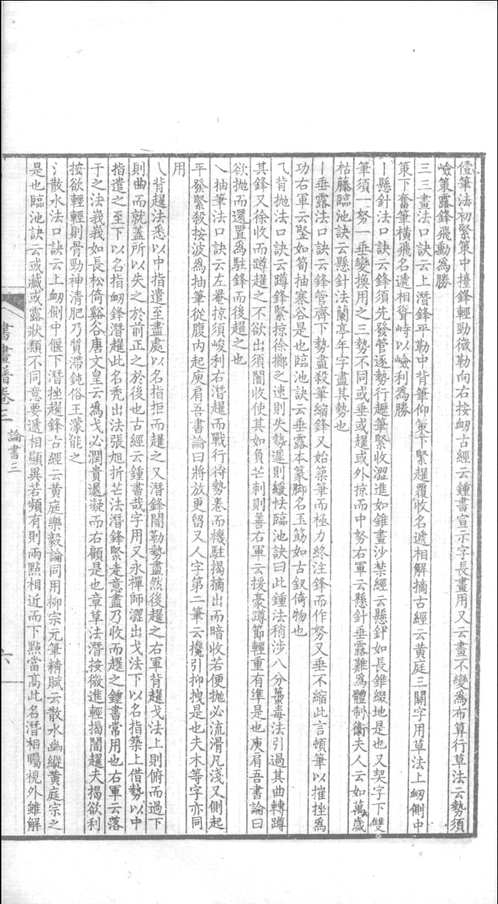 偃筆法初緊策中擡鋒輕勁微勒向右按衂古經云鍾書宣示字長畫用又云畫不變爲布算行草法云勢須
嶮策露鋒飛動爲勝
三三畫法口訣云上潛鋒平勒中背筆仰策下緊趯覆收名遞相解摘古經云黃庭三關字用草法上衂側中
策下奮筆橫飛名遞相背時以嶮利爲勝
丨懸針法口訣云鋒須先發管逐勢行趯筆緊收澀進如錐畫沙禁經云懸針如長錐綴地是也又契字下雙
筆須一努一垂變換用之三勢不同或垂或趯或外掠而中努右軍云懸針垂露難爲體制衞夫人云如萬歲
枯藤臨池訣云懸針法蘭亭年字盡其勢也
丨垂露法口訣云鋒管齊下勢盡殺筆縮鋒又始築筆而極力終注鋒而作努又垂不縮此言頓筆以摧挫爲
功右軍云緊如筍抽寒谷是也臨池訣云垂露本篆脚名玉筯如古釵倚物也
背抛法口訣云蹲鋒緊掠徐擲之速則失勢遲則緩怯臨池訣曰此鍾法稍涉八分蠆毒法引過其曲轉蹲
其鋒又徐收而蹲趯之不欲出須闇收使其如負芒刺則善右軍云援豪蹲節輕重有準是也庾肩吾書論曰
欲抛而還置爲駐鋒而後趯之也
抽筆法口訣云左罨掠須峻利右潛趯而戰行待勢卷而機駐揭摘出而暗收若便抛必流滑凡淺又側起
平發緊殺按波爲抽筆從腹內起庾肩吾書論曰將放更留又人字第二筆云攙引抑拽是也夫木等字亦同
用
背趯法悉以中指遣至盡處以名指拒而趯之又潛鋒闇勒勢盡然後趯之右軍背趯戈法上則俯而過下
則曲而就蓋所以失之於前正之於後也古經云鍾書哉字用又永禪師澀出戈法下以名指築上借勢以中
指遣之至下以名指衂鋒潛趯此名禿出法張旭折芒法潛鋒緊走意盡乃收而趯之鍾書常用也右軍云落
戈之法峩峩如長松倚谿谷唐文皇云爲戈必潤貴遲疑而右顧是也章草法潛按微進輕揭闇趯夫揭欲利
按欲輕輕則骨勁神清肥乃質滯鈍俗王濛能之
氵散水法口訣云上衂側中偃下潛挫趯鋒古經云黃庭樂毅論同用柳宗元筆精賦云散水幽縱黃庭宗之
是也臨池訣云或藏或露狀類不同意要遞相顯異若頻有則兩點相近而下點當高此名潛相矚視外雖解
書畫譜卷三
論書三
六